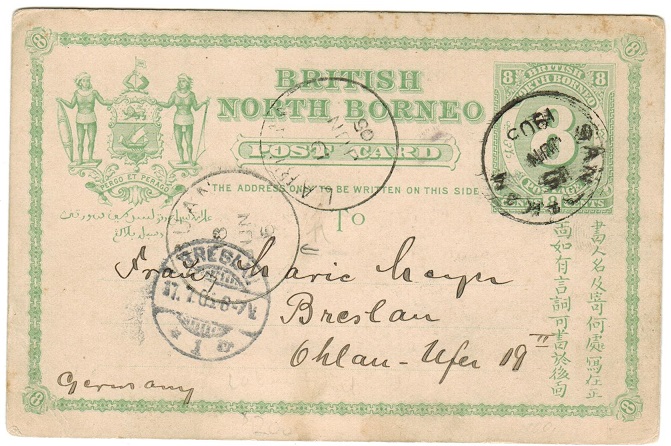 8
8
BRITISH
NORTH BORNEO
POST CARD
THE ADDRESS ONLY TO BE WRITTEN ON THIS SIDE
PERGO ET PERAGO
BRITISH
NORTH BORNEO
8
8
8
POSTAGE
CENTS
SANDAKAN
JUN
1905
LABUAN
JUN
05
JUN
To
書人名及寄何處寫在正
面如有言詞可書於後面
BRESLAU
Frau Marie Meyer
Breslau
Ohlau-Ufer 19 II
Germany
8
8